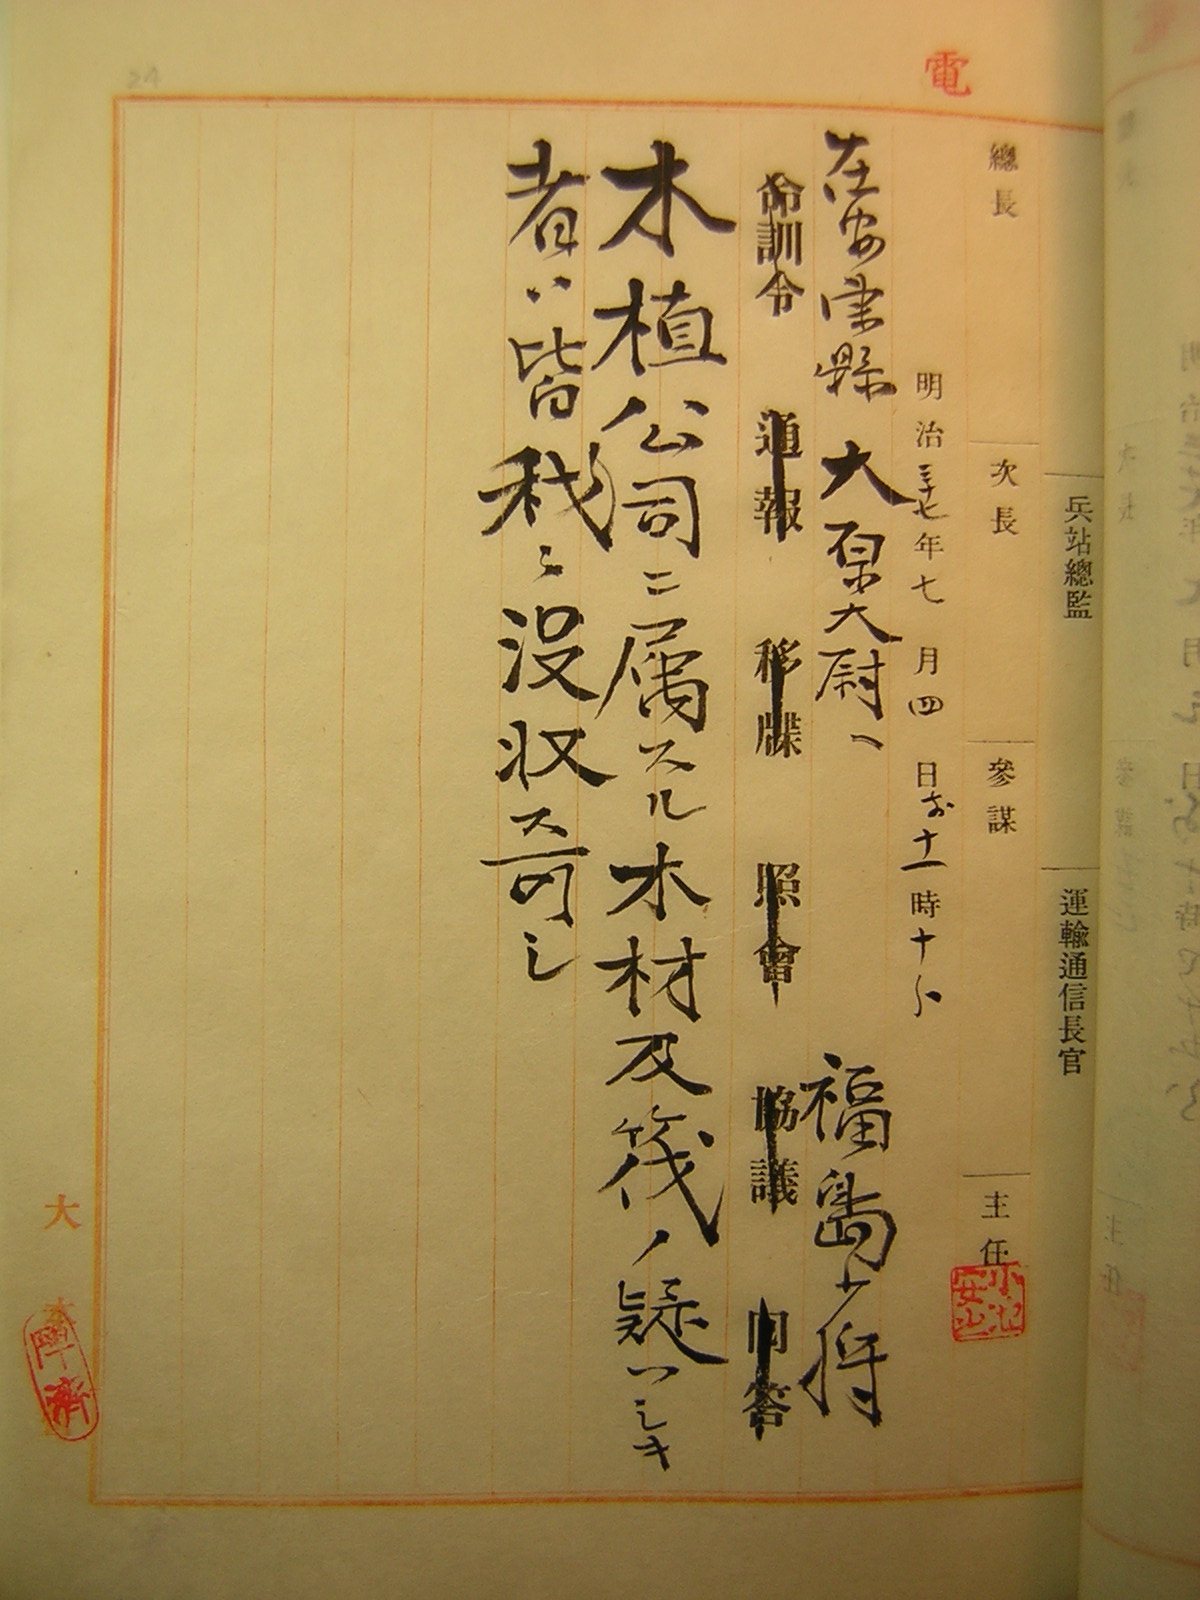 電
兵站總監 運輸通信長官
總長 次長 參謀 主任
明治三十七年七月四日前十一時十分
在安東縣 大原大尉へ 福島少将
命訓令 通報 移牒 照會 協議 回答
木植公司ニ属スル木材及筏ノ疑ハシキ
者ハ皆我ニ没収ス可シ
大本
24